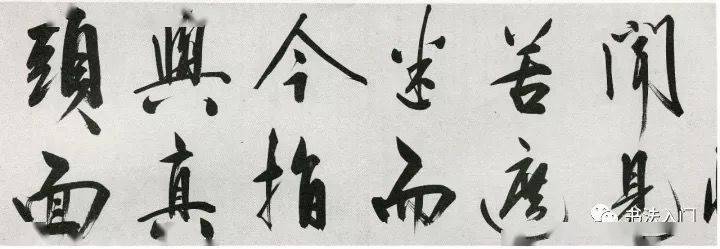 聞見
苦遮
迷而
今指
與真
頭面
书法入门